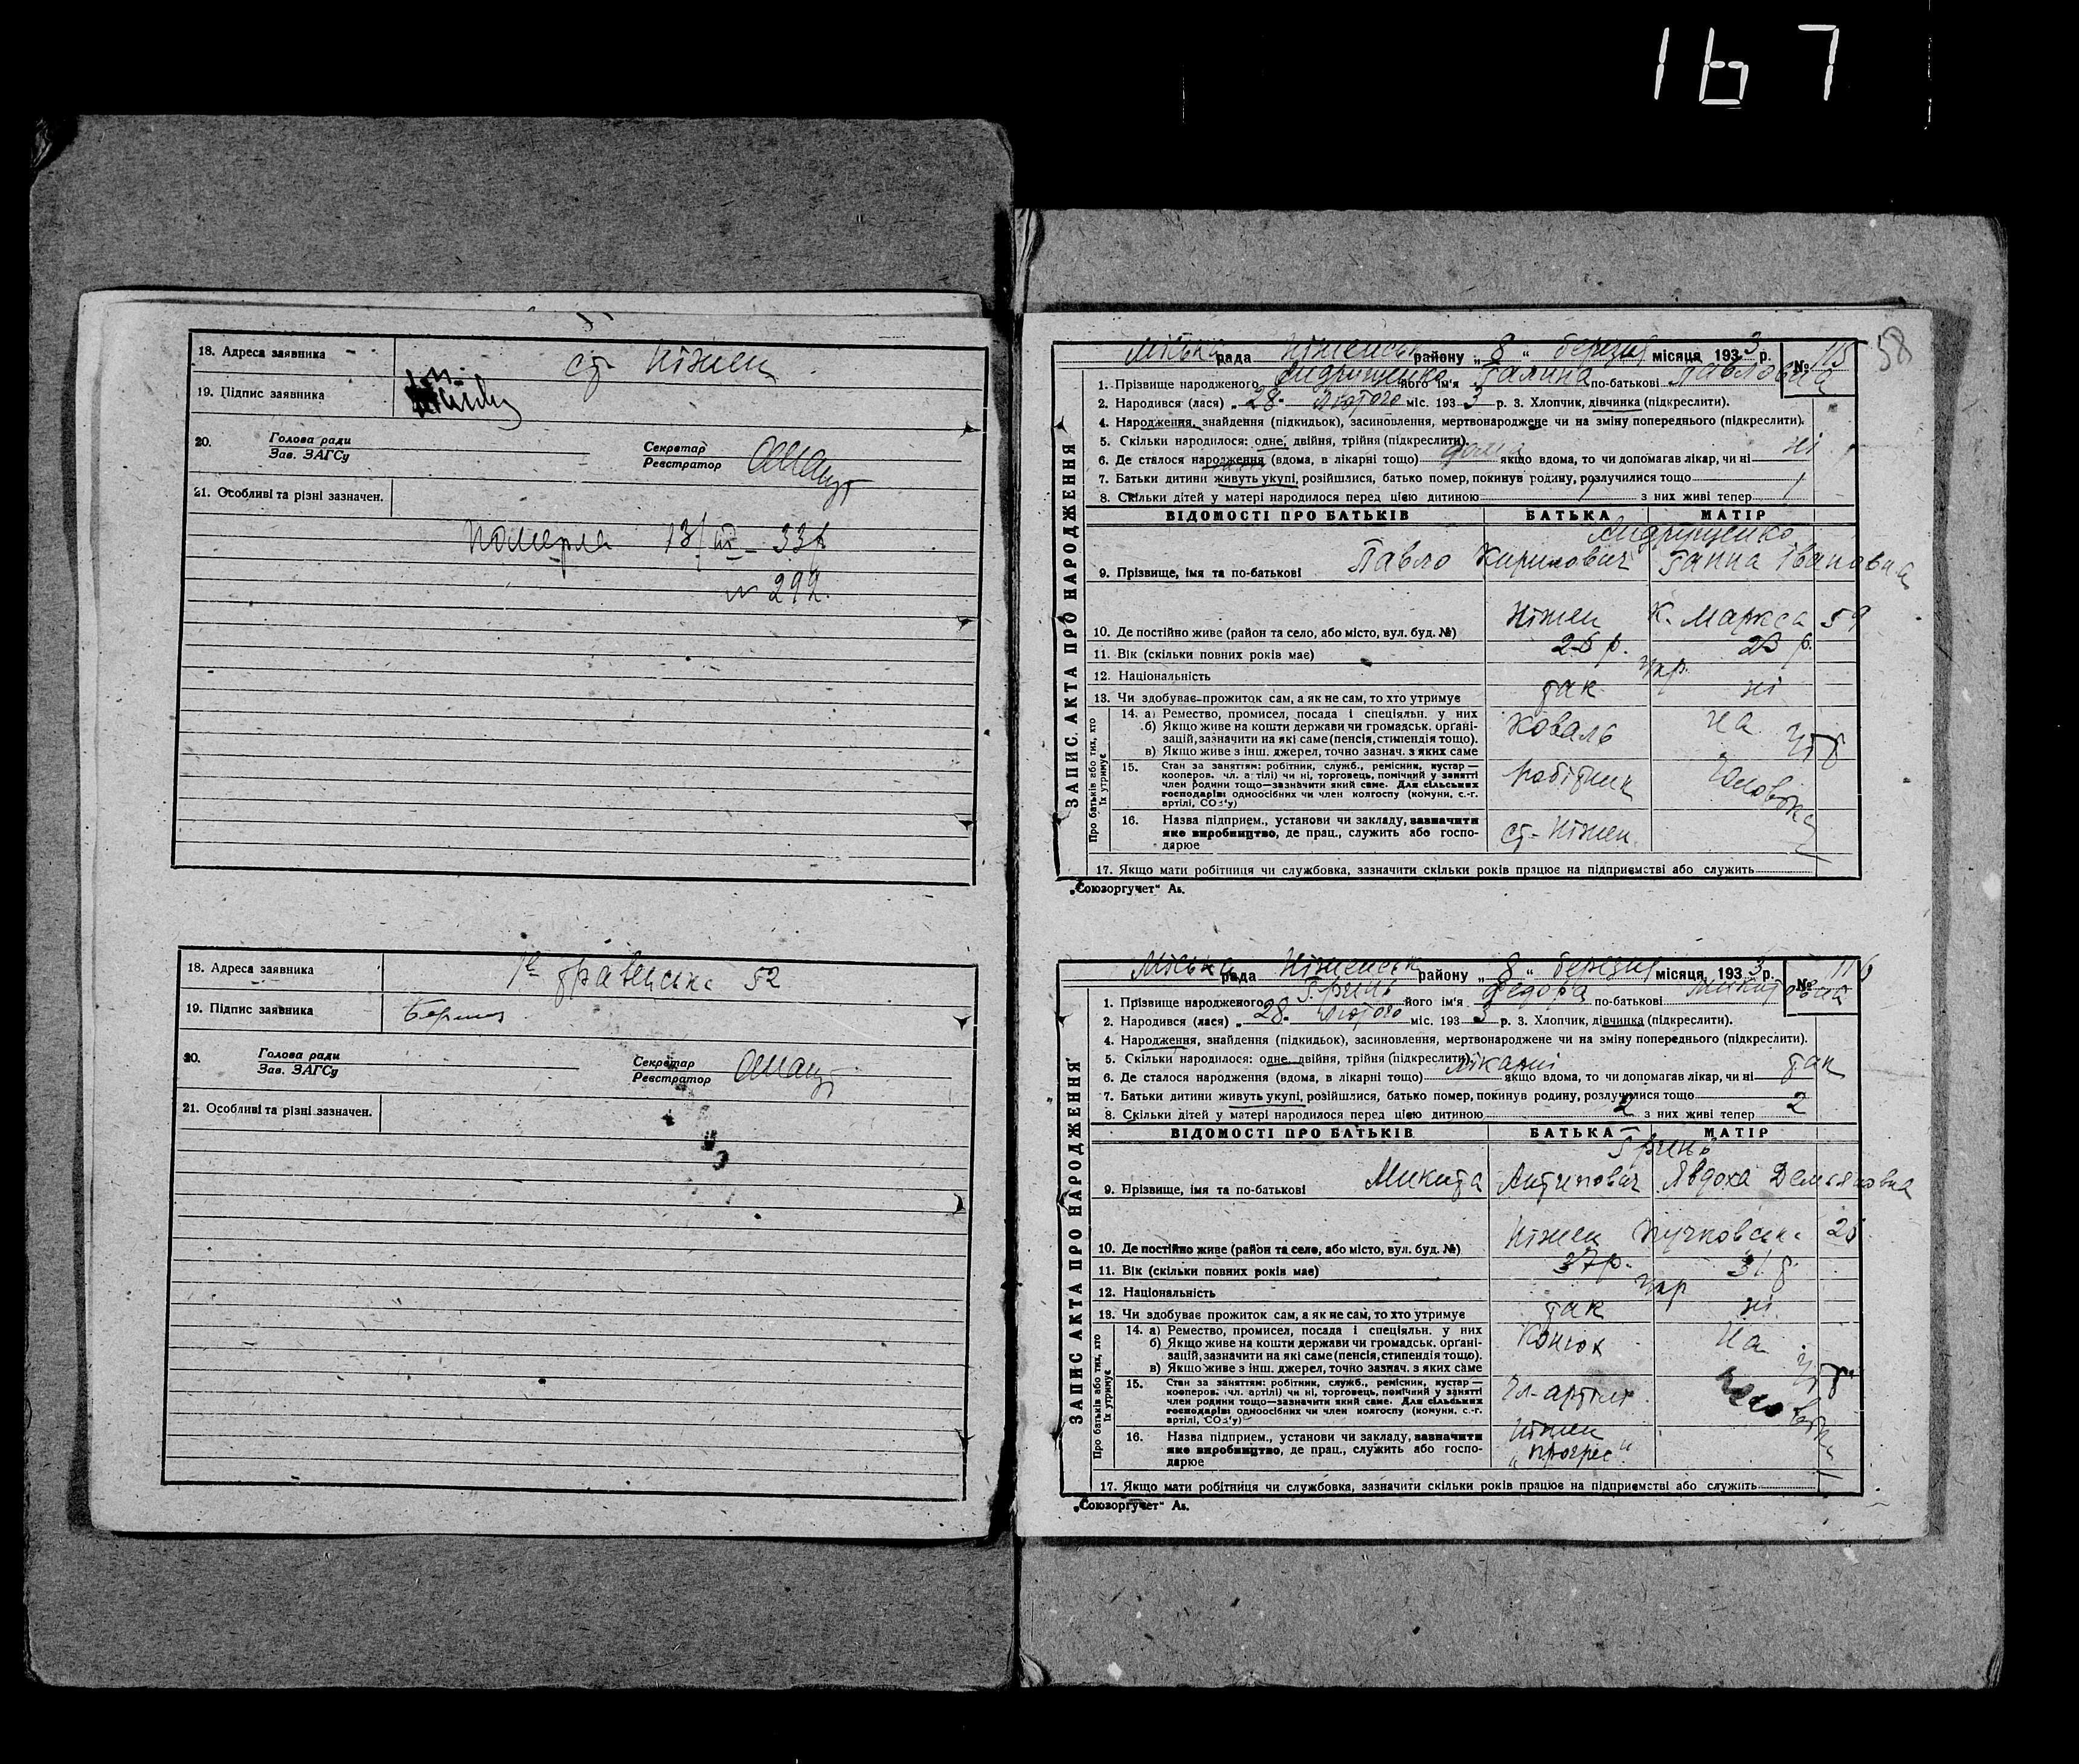 167
18. Адреса заявника ст Ніжен
19. Підпис заявника
20. Голова ради Секретар
Зав. ЗАГСу Реєстратор
21. Особливі та різні зазначен.
Померла 13/ 33р
№ 292.
18. Адреса заявника 1е травенська 52
19. Підпис заявника
20. Голова ради Секретар
Зав. ЗАГСу Реєстратор
21. Особливі та різні зазначен.
58
ЗАПИС АКТА ПРО НАРОДЖЕННЯ
Міська рада Ніженськ району „ 8 “ березня місяця 1933 р. № 115
1. Прізвище народженого Андрющенко його ім'я Галина по-батькові Павловна
2. Народився (лася) „ 28 Лютого міс. 1933 р. 3. Хлопчик, дівчинка (підкреслити).
4. Народження, знайдення (підкидьок), засиновлення, мертвонароджене чи на зміну попереднього (підкреслити).
5. Скільки народилося: одне, двійня, трійня (підкреслити).
6. Де сталося народження (вдома, в лікарні тощо) дома якщо вдома, то чи допомагав лікар, чи ні ні
7. Батьки дитини живуть укупі, розійшлися, батько помер, покинув родину, розлучилися тощо
8. Скільки дітей у матері народилося перед цією дитиною 1 з них живі тепер 1
ВІДОМОСТІ ПРО БАТЬКІВ БАТЬКА МАТІР
Андрющенко
9. Прізвище, імя та по-батькові Павло Кирилович Ганна Івановна
10. Де постійно живе (район та село, або місто, вул. буд. №) Ніжен К. Маркса 59
11. Вік (скільки повних років має) 25 р. 23 р.
12. Національність Укр.
13. Чи здобуває прожиток сам, а як не сам, то хто утримує так ні
Про батьків або тих, хто їх утримує
14. а) Ремество, промисел, посада і спеціяльн. у них Коваль На
б) Якщо живе на кошти держави чи громадськ. орґані-
зацій, зазначити на які саме (пенсія, стипендія тощо).
в) Якщо живе з інш. джерел, точно зазнач. з яких саме
15. Стан за заняттям: робітник, служб., ремісник, кустар— робітник Чоловіка
кооперов. чл. артілі) чи ні, торговець, помічний у занятті
член родини тощо—зазначити який саме. Для сільських
господарів: одноосібних чи член колгоспу (комуни, с.-г.
артілі, СОЗ'у)
16. Назва підприєм., установи чи закладу, зазначити
яке виробництво, де прац., служить або госпо- ст. Ніжен
дарює
17. Якщо мати робітниця чи службовка, зазначити скільки років працює на підприємстві або служить
„Союзоргучет“ Аз.
ЗАПИС АКТА ПРО НАРОДЖЕННЯ
Міська рада Ніженськ району „ 8 “ березня місяця 1933 р. № 116
1. Прізвище народженого Гринь його ім'я Федора по-батькові Микитовна
2. Народився (лася) „ 28 Лютого міс. 1933 р. 3. Хлопчик, дівчинка (підкреслити).
4. Народження, знайдення (підкидьок), засиновлення, мертвонароджене чи на зміну попереднього (підкреслити).
5. Скільки народилося: одне, двійня, трійня (підкреслити).
6. Де сталося народження (вдома, в лікарні тощо) лікарні якщо вдома, то чи допомагав лікар, чи ні так
7. Батьки дитини живуть укупі, розійшлися, батько помер, покинув родину, розлучилися тощо
8. Скільки дітей у матері народилося перед цією дитиною 2 з них живі тепер 2
ВІДОМОСТІ ПРО БАТЬКІВ БАТЬКА МАТІР
Гринь
9. Прізвище, імя та по-батькові Микита Антипович Явдоха Демьяновна
10. Де постійно живе (район та село, або місто, вул. буд. №) Ніжен
11. Вік (скільки повних років має) 37р. 31 р
12. Національність Укр
13. Чи здобуває прожиток сам, а як не сам, то хто утримує так ні
Про батьків або тих, хто їх утримує
14. а) Ремество, промисел, посада і спеціяльн. у них Конюх На
б) Якщо живе на кошти держави чи громадськ. орґані-
зацій, зазначити на які саме (пенсія, стипендія тощо).
в) Якщо живе з інш. джерел, точно зазнач. з яких саме
15. Стан за заняттям: робітник, служб., ремісник, кустар— Чл. артілі
кооперов. чл. артілі) чи ні, торговець, помічний у занятті
член родини тощо—зазначити який саме. Для сільських
господарів: одноосібних чи член колгоспу (комуни, с.-г.
артілі, СОЗ'у)
16. Назва підприєм., установи чи закладу, зазначити Ніжен
яке виробництво, де прац., служить або госпо- „Прогрес“
дарює
17. Якщо мати робітниця чи службовка, зазначити скільки років працює на підприємстві або служить
„Союзоргучет“ Аз.